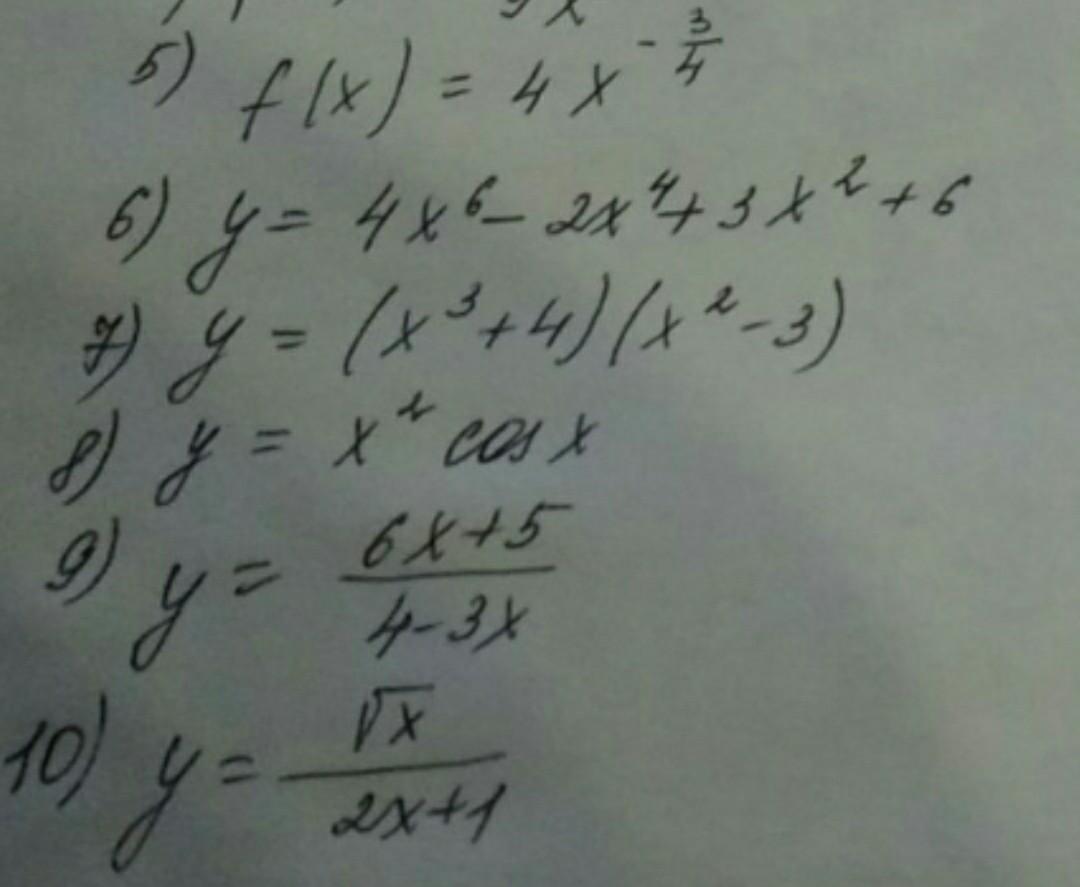 5) f(x) = 4x^{-\frac{3}{4}}
6) y = 4x^6 - 2x^4 + 3x^2 + 6
7) y = (x^3 + 4)(x^2 - 3)
8) y = x^2 cos x
9) y = \frac{6x+5}{4-3x}
10) y = \frac{\sqrt{x}}{2x+1}